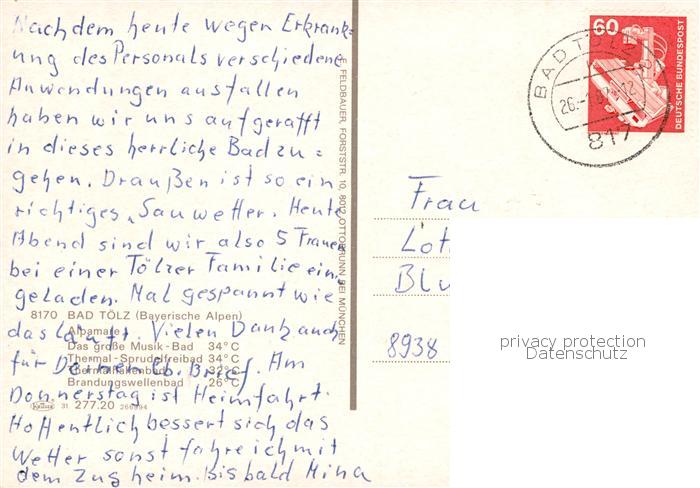 Nachdem heute wegen Erkrank=
ung des Personals verschiedene
Anwendungen ausfallen
haben wir uns aufgerafft
in dieses herrliche Bad zu=
gehen. Draußen ist so ein
richtiges „Sauwetter. Heute
Abend sind wir also 5 Frauen
bei einer Tölzer Familie ein=
geladen. Mal gespannt wie
das läuft. Vielen Dank auch
für Deinen lb. Brief. Am
Donnerstag ist Heimfahrt.
Hoffentlich bessert sich das
Wetter sonst fahre ich mit
dem Zug heim. Bis bald Mina
8170 BAD TÖLZ (Bayerische Alpen)
Alpamare
Das große Musik-Bad 34°C
Thermal-Sprudelfreibad 34°C
Thermalhallenbad 32°C
Brandungswellenbad 26°C
31 277.20
E. FELDBAUER, FORSTSTR. 10, 8012 OTTOBRUNN BEI MÜNCHEN
60
DEUTSCHE BUNDESPOST
BAD TÖLZ
817
Frau
8938
privacy protection
Datenschutz